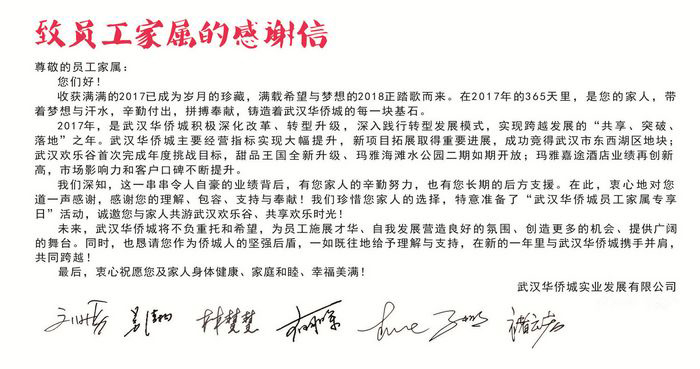 致员工家属的感谢信
尊敬的员工家属:
您们好!
收获满满的2017已成为岁月的珍藏,满载希望与梦想的2018正踏歌而来。在2017年的365天里,是您的家人,带
着梦想与汗水,辛勤付出,拼搏奉献,铸造着武汉华侨城的每一块基石。
2017年,是武汉华侨城积极深化改革、转型升级,深入践行转型发展模式,实现跨越发展的“共享、突破、
落地”之年。武汉华侨城主要经营指标实现大幅提升,新项目拓展取得重要进展,成功竞得武汉市东西湖区地块;
武汉欢乐谷首次完成年度挑战目标,甜品王国全新升级、玛雅海滩水公园二期如期开放;玛雅嘉途酒店业绩再创新
高,市场影响力和客户口碑不断提升。
我们深知,这一串串令人自豪的业绩背后,有您家人的辛勤努力,也有您长期的后方支援。在此,衷心地对您
道一声感谢,感谢您的理解、包容、支持与奉献!我们珍惜您家人的选择,特意准备了“武汉华侨城员工家属专享
日”活动,诚邀您与家人共游武汉欢乐谷、共享欢乐时光!
未来,武汉华侨城将不负重托和希望,为员工施展才华、自我发展营造良好的氛围、创造更多的机会、提供广阔
的舞台。同时,也恳请您作为侨城人的坚强后盾,一如既往地给予理解与支持,在新的一年里与武汉华侨城携手并肩,
共同跨越!
最后,衷心祝愿您及家人身体健康、家庭和睦、幸福美满!
武汉华侨城实业发展有限公司